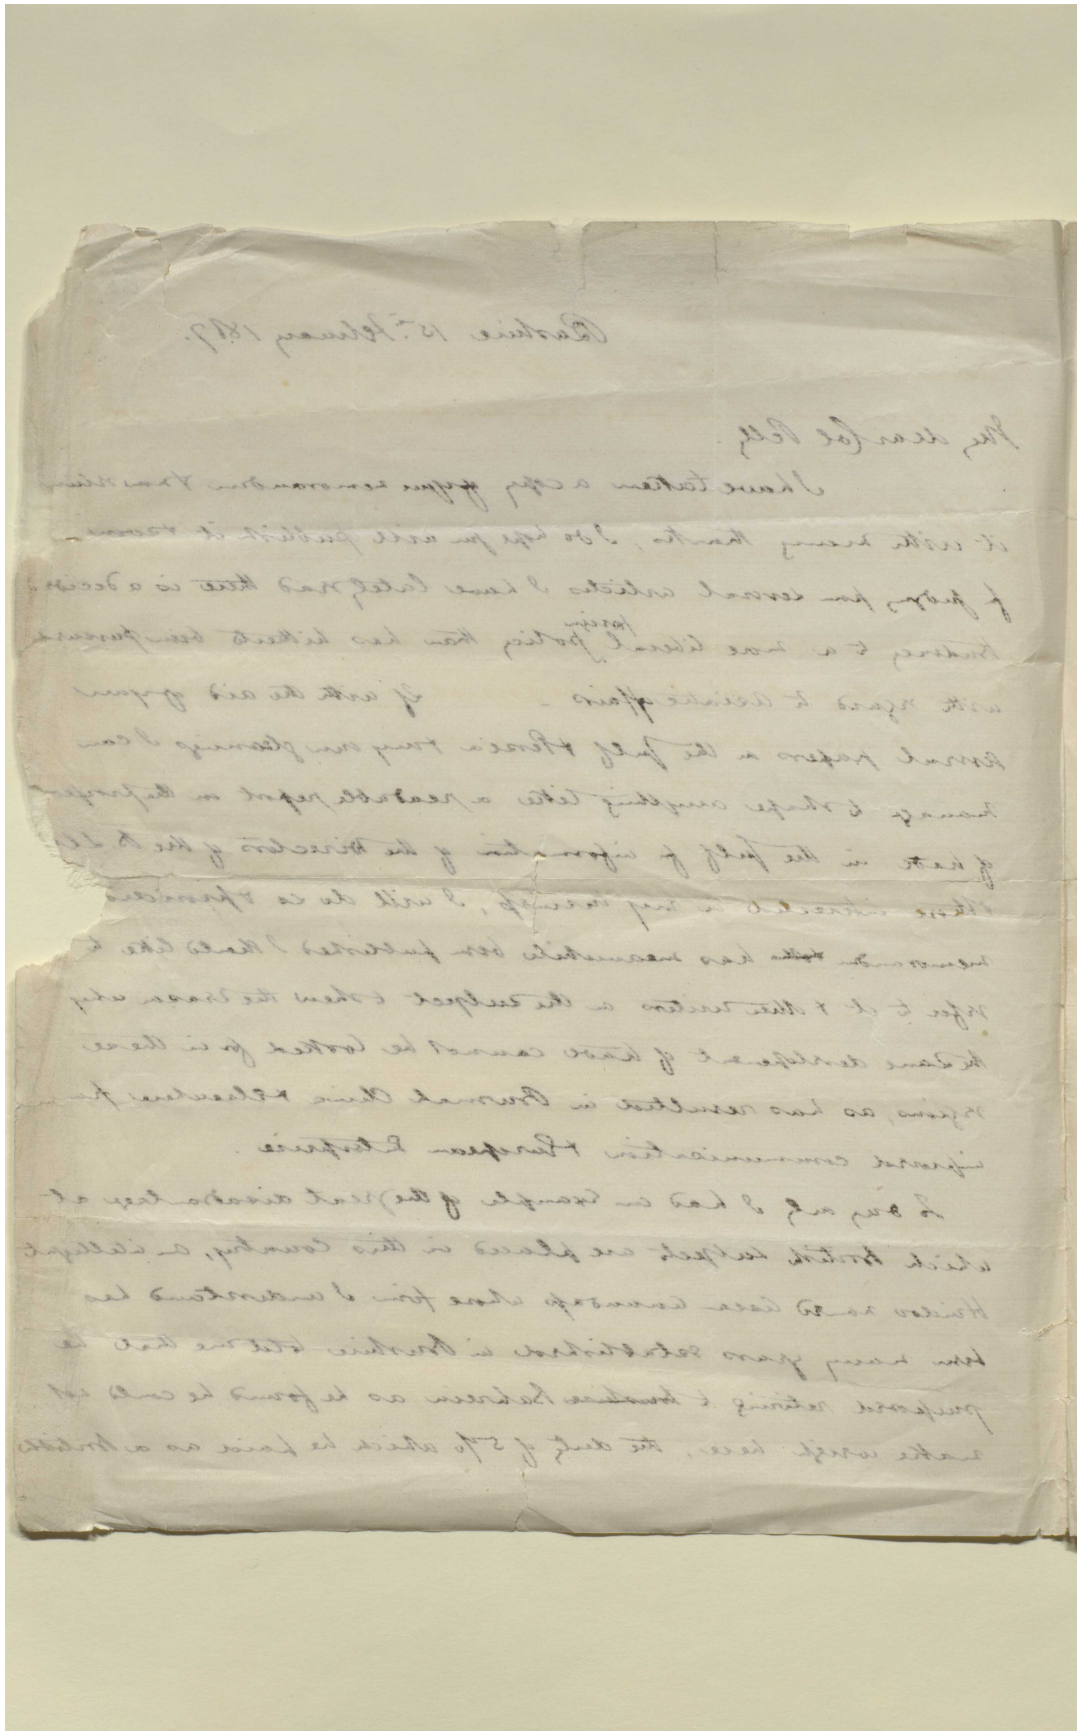 Bushire 15th February 1867.
My dear Col Pelly
I have taken a copy of your memorandum &
it with many thanks, I do hope you will publish it &
for judging from several articles I have lately read there is a decided
tendency to a more liberal foreign policy than has hitherto been pursued
with regard to Asiatic affairs - If with the aid of your
several papers on the Gulf & Persia & my own gleanings I can
manage to shape anything like a readable report on the prospects
of trade in the Gulf for information of the Directors of the B
those interested in my, I will do so & provided
memorandum has meanwhile been published I should like to
refer to it & other writers on the subject & shew the reason why
the same development of trade cannot be looked for in these
regions, as has resulted in Burmah China & elsewhere from
improved communication & European Enterprise.
I had an example of the great disadvantage at
which British subjects are placed in this Country, an intelligent
Hindoo named whose firm I understand has
been many years established in Bushire told me that he
purposed retiring to Bushire Bahrein as he found he could not
make way here, the duty of 5% which he paid as a British